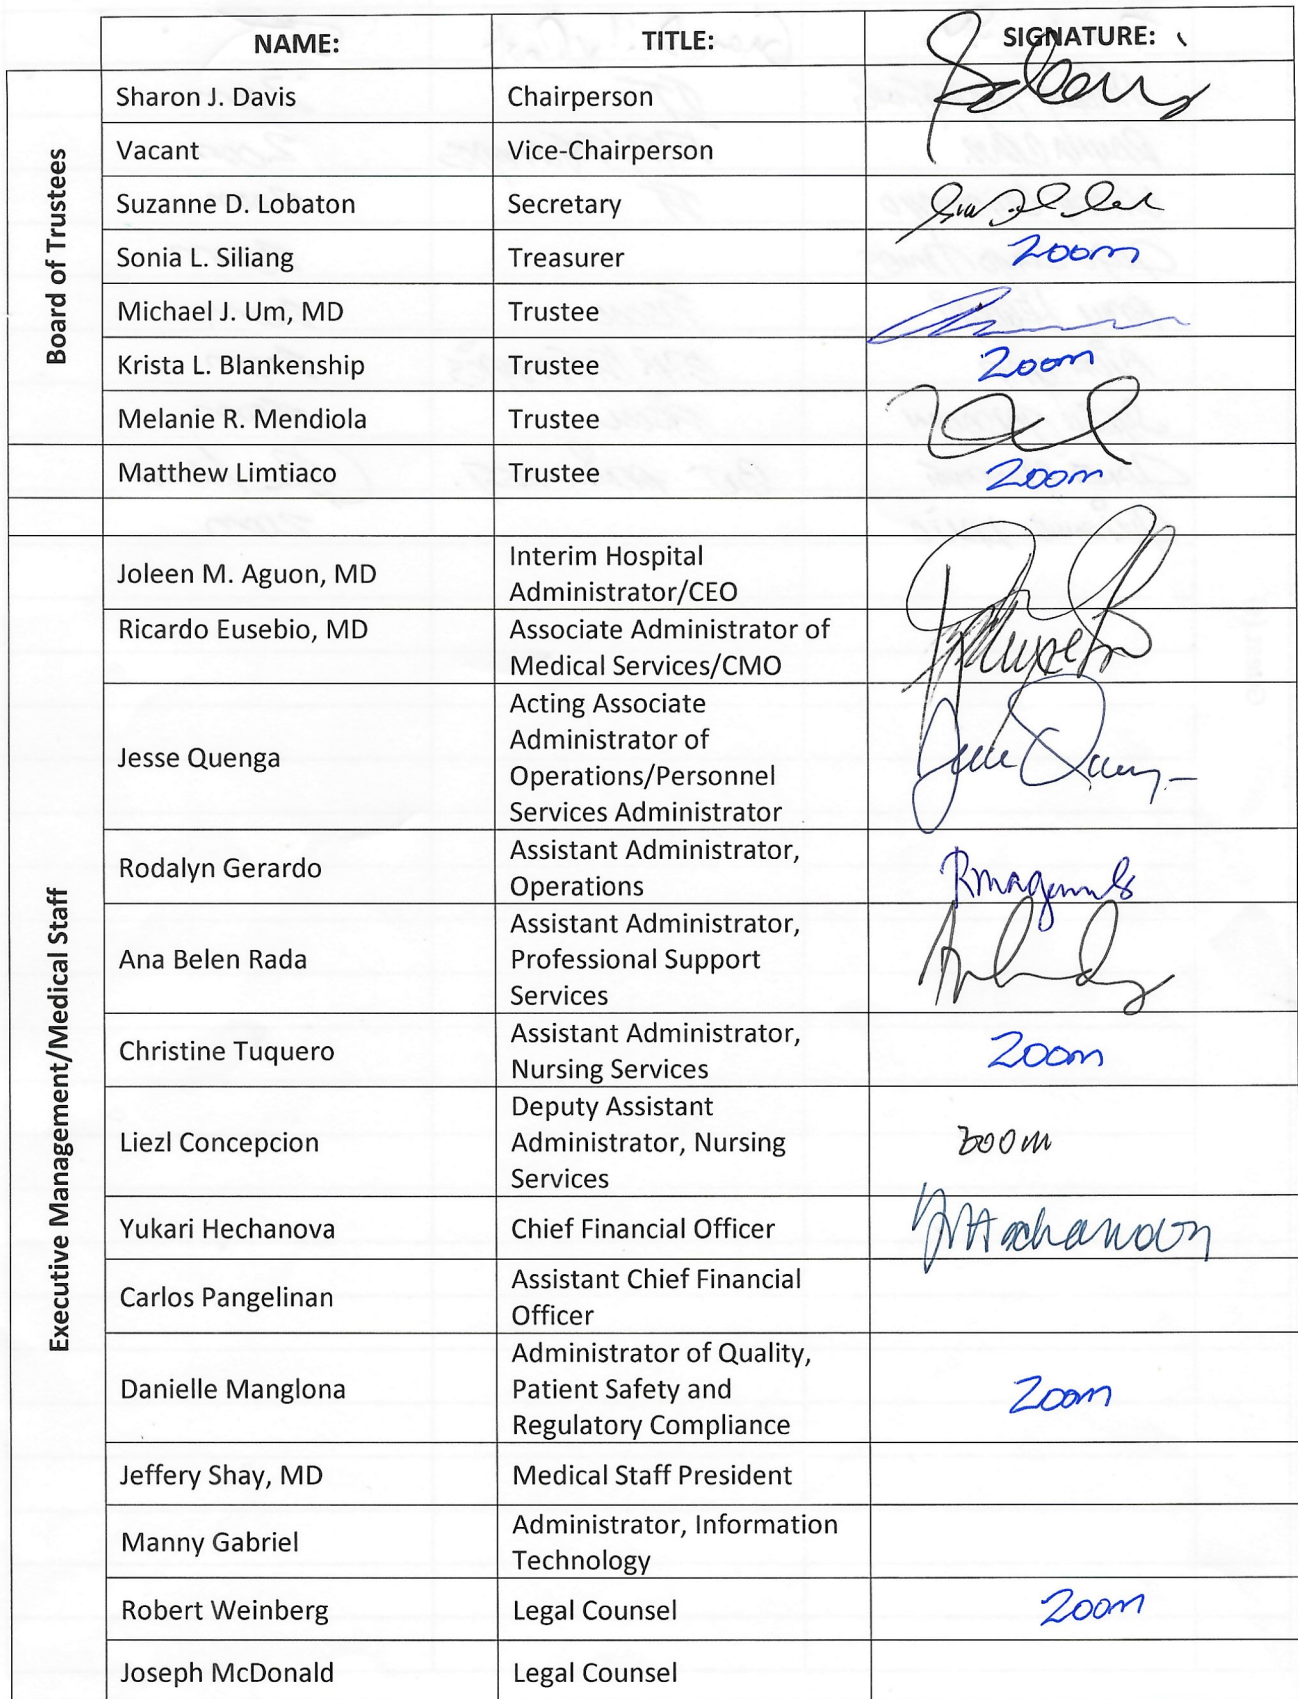 NAME: TITLE: SIGNATURE:
Board of Trustees
Sharon J. Davis Chairperson
Vacant Vice-Chairperson
Suzanne D. Lobaton Secretary
Sonia L. Siliang Treasurer Zoom
Michael J. Um, MD Trustee
Krista L. Blankenship Trustee Zoom
Melanie R. Mendiola Trustee
Matthew Limtiaco Trustee Zoom
Executive Management/Medical Staff
Joleen M. Aguon, MD Interim Hospital
Administrator/CEO
Ricardo Eusebio, MD Associate Administrator of
Medical Services/CMO
Jesse Quenga Acting Associate
Administrator of
Operations/Personnel
Services Administrator
Rodalyn Gerardo Assistant Administrator,
Operations
Ana Belen Rada Assistant Administrator,
Professional Support
Services
Christine Tuquero Assistant Administrator,
Nursing Services Zoom
Liezl Concepcion Deputy Assistant
Administrator, Nursing
Services zoom
Yukari Hechanova Chief Financial Officer
Carlos Pangelinan Assistant Chief Financial
Officer
Danielle Manglona Administrator of Quality,
Patient Safety and
Regulatory Compliance Zoom
Jeffery Shay, MD Medical Staff President
Manny Gabriel Administrator, Information
Technology
Robert Weinberg Legal Counsel Zoom
Joseph McDonald Legal Counsel